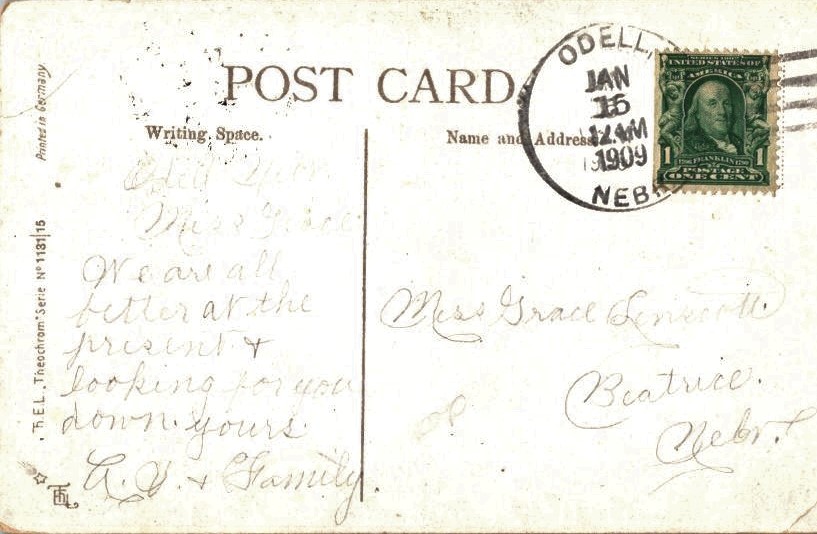 POST CARD
Writing Space.
Name and Address
Printed in Germany.
T.H.E.L. Theochrom Serie Nº 1181|15
ODELL,
JAN
16
12 AM
1909
NEBR
SERIES 1902
UNITED STATES OF
AMERICA
FRANKLIN
1 1
POSTAGE
ONE CENT
Odell Nebr
Miss Grace
We are all
better at the
present &
looking for you
down. yours
& Family
Miss Grace Linscott
Beatrice.
Nebr.